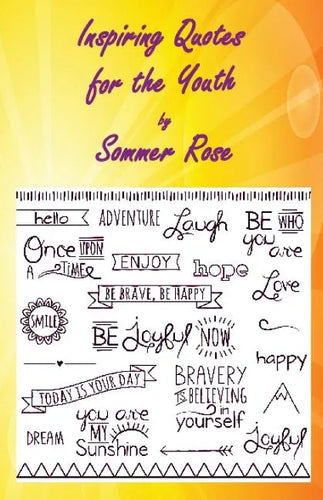 Inspiring Quotes
for the Youth
by
Sommer Rose
hello
ADVENTURE
Laugh
BE WHO
you
are
Once UPON
A TIME
ENJOY
hope
Love
BE BRAVE, BE HAPPY
SMILE
BE Joyful
NOW
happy
TODAY IS YOUR DAY
BRAVERY
IS BELIEVING
in
yourself
DREAM
you are
MY
Sunshine
Joyful